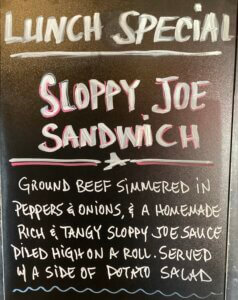 LUNCH SPECIAL
SLOPPY JOE
SANDWICH
GROUND BEEF SIMMERED IN
PEPPERS & ONIONS, & A HOMEMADE
RICH & TANGY SLOPPY JOE SAUCE
PILED HIGH ON A ROLL. SERVED
W/ A SIDE OF POTATO SALAD